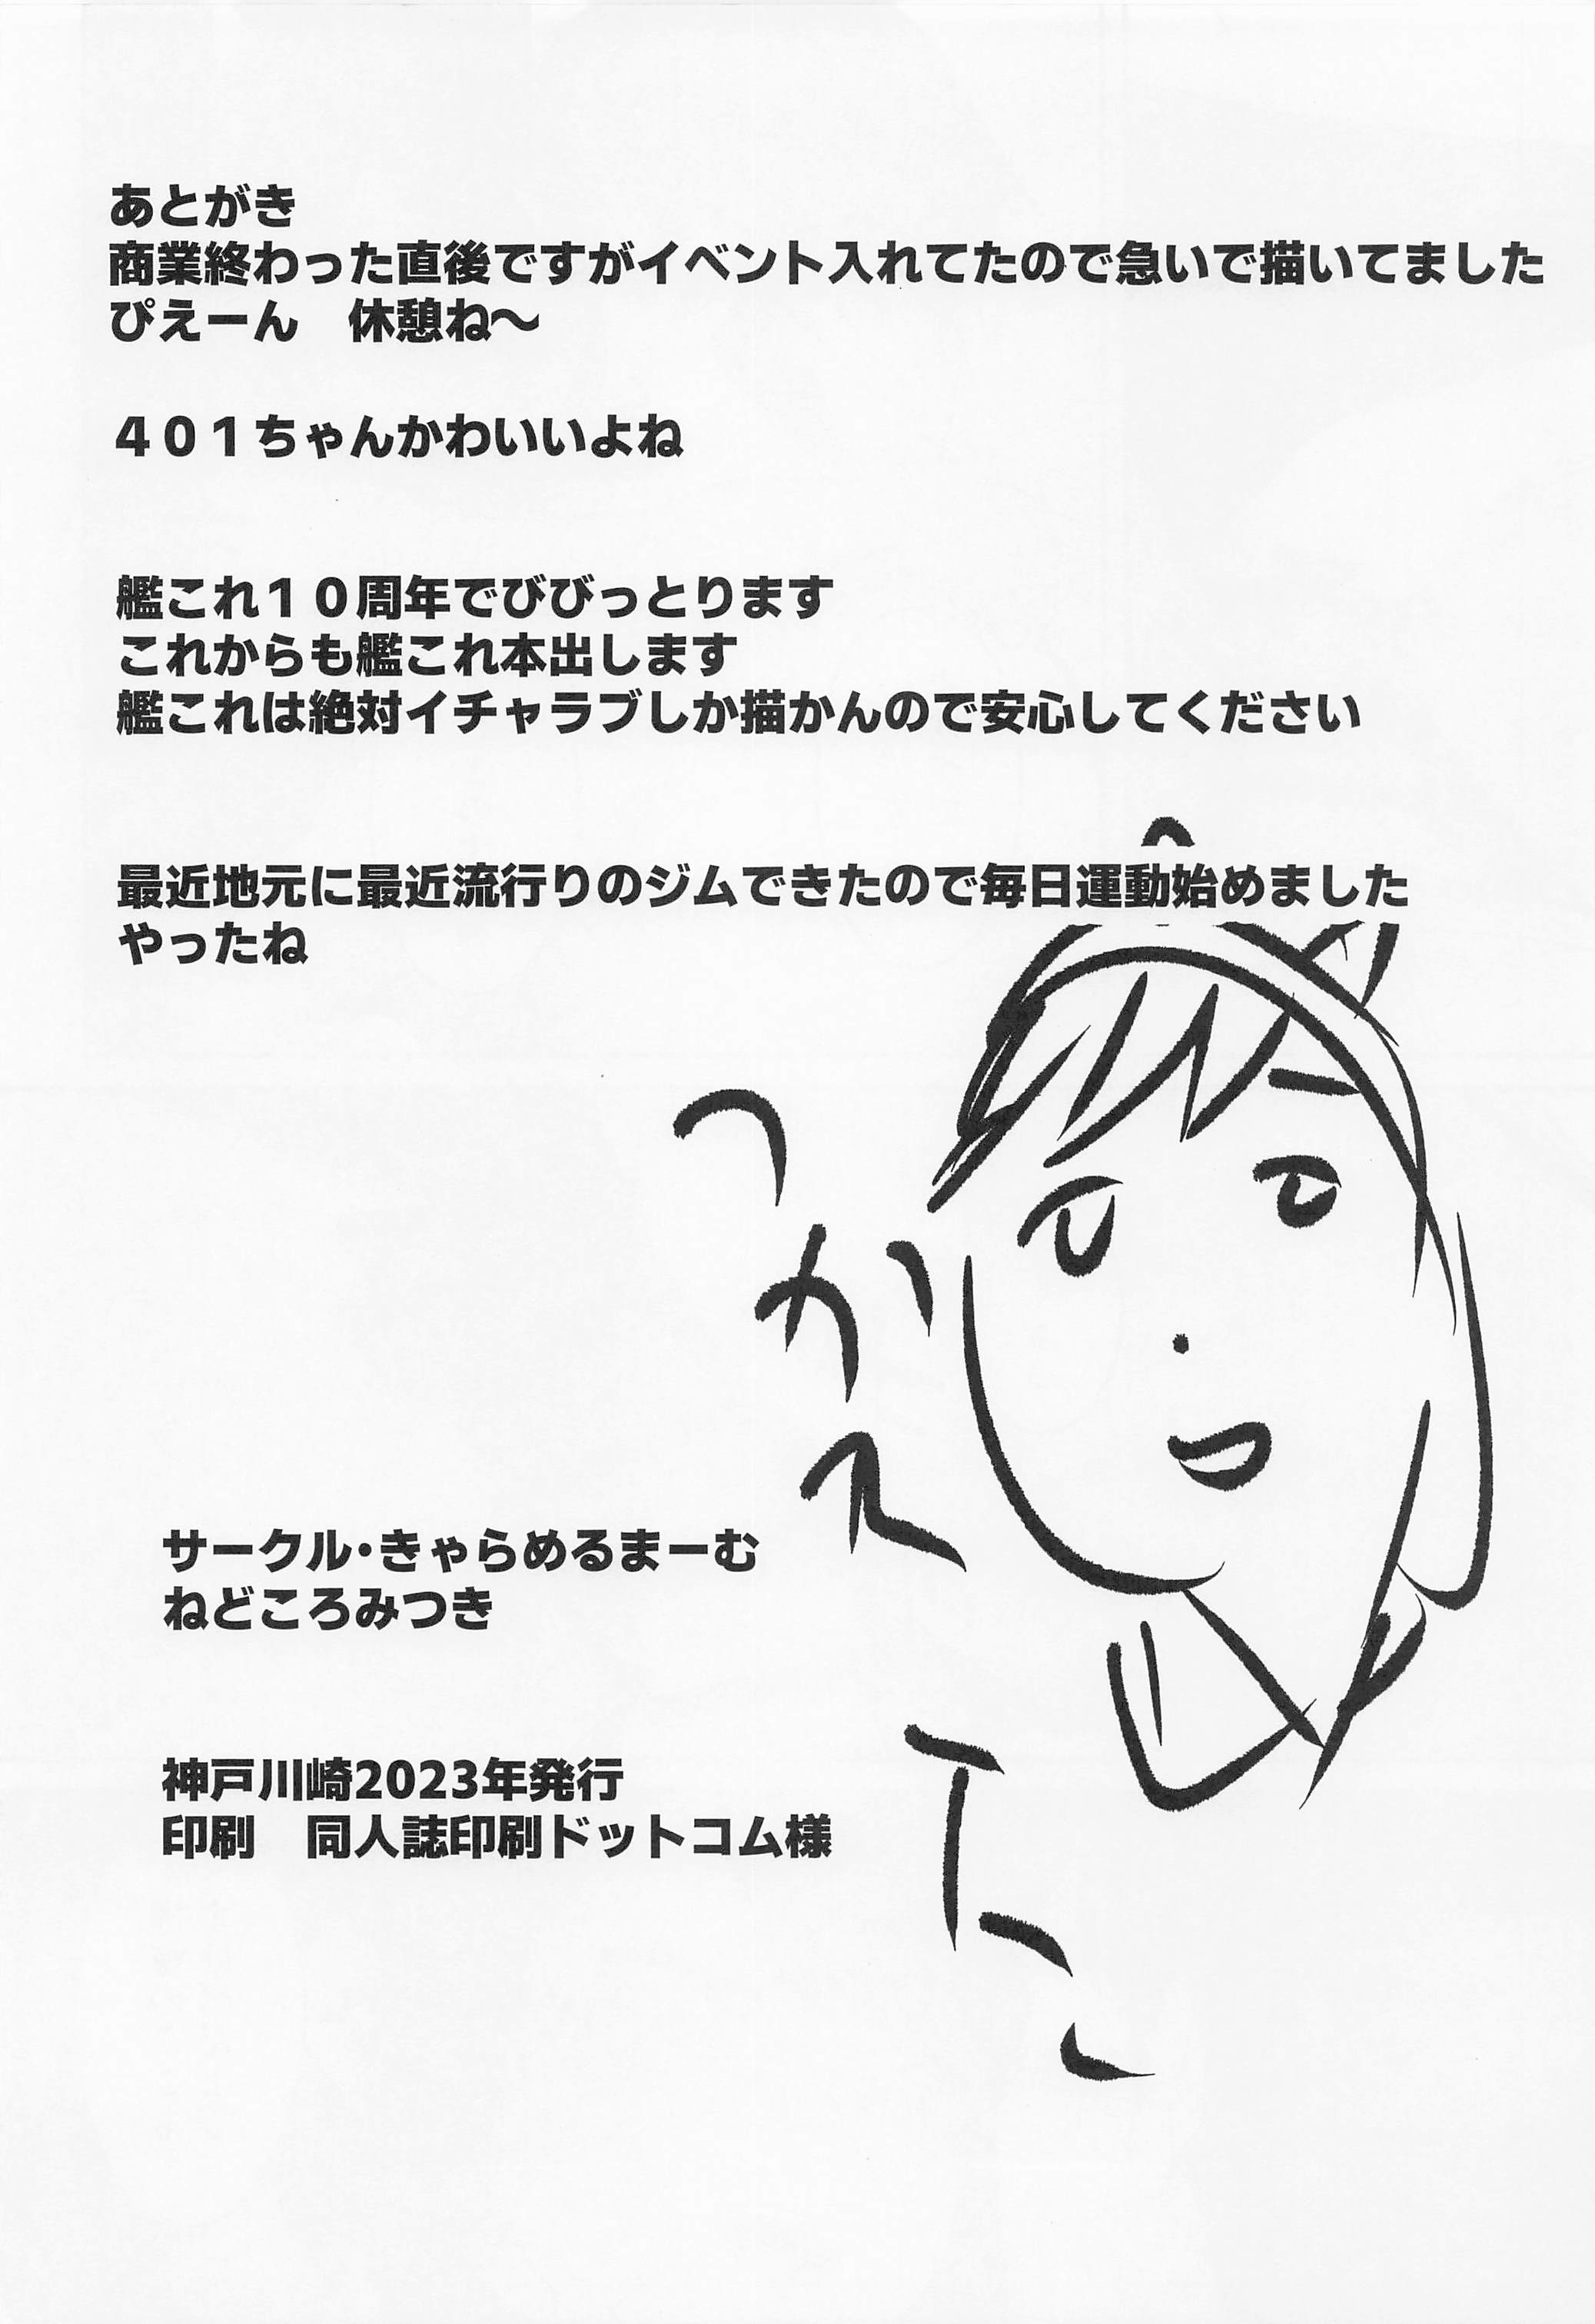 あとがき
商業終わった直後ですがイベント入れてたので急いで描いてました
ぴえーん　休憩ね〜
４０１ちゃんかわいいよね
艦これ１０周年でびびっとります
これからも艦これ本出します
艦これは絶対イチャラブしか描かんので安心してください
最近地元に最近流行りのジムできたので毎日運動始めました
やったね
つかえてこ
サークル・きゃらめるまーむ
ねどころみつき
神戸川崎2023年発行
印刷　同人誌印刷ドットコム様